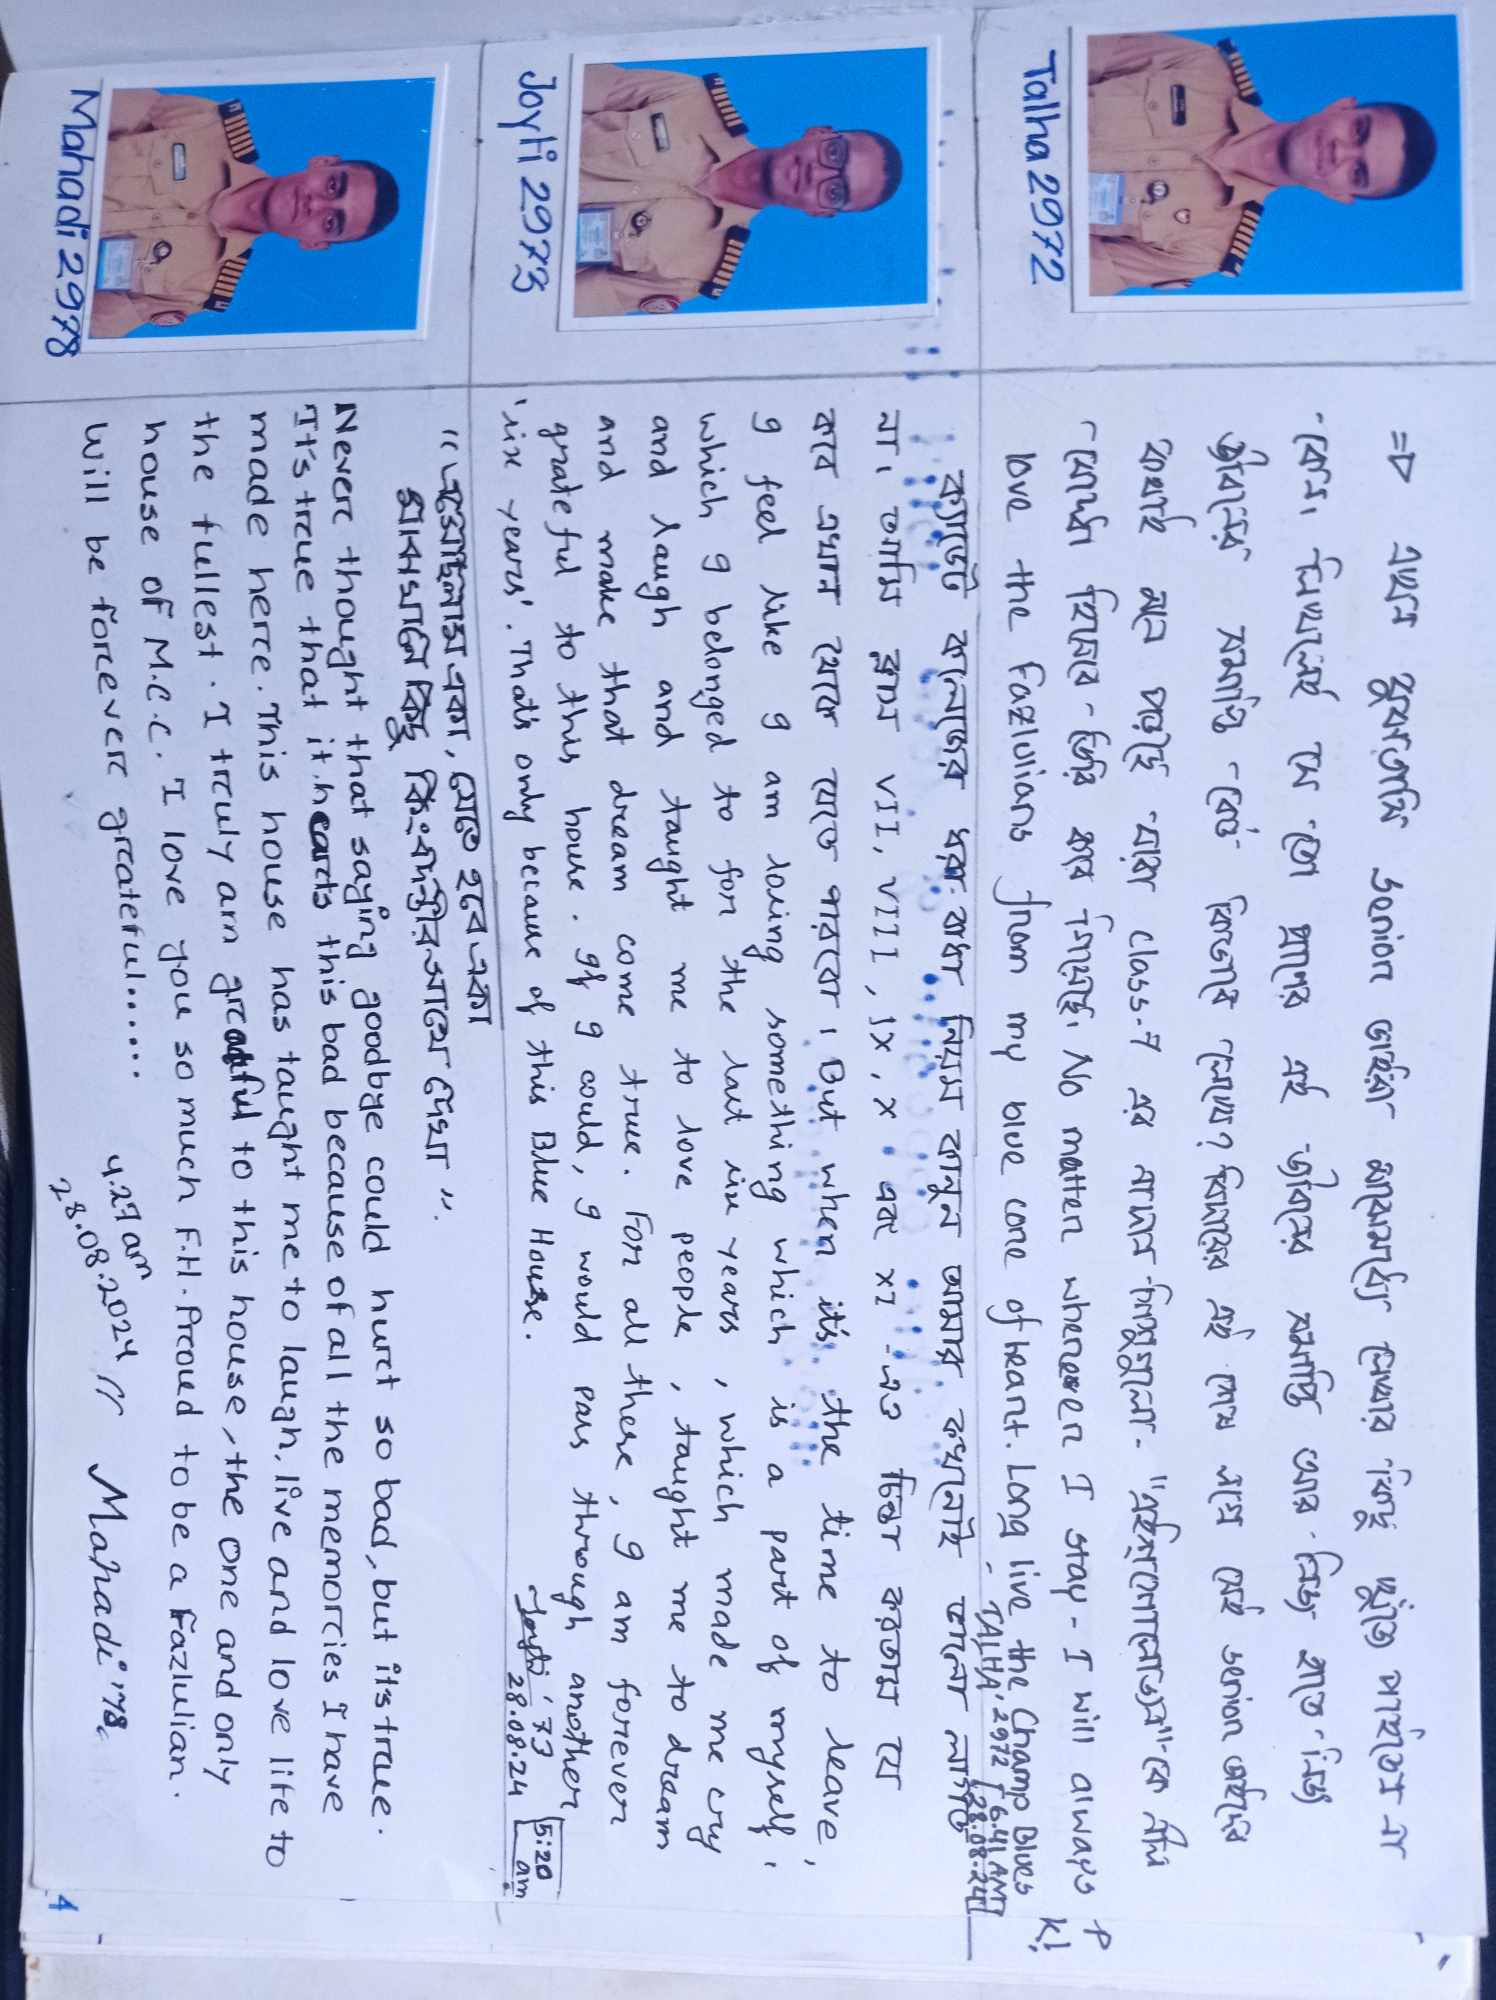 => এখন বুঝতাসি senior ভাইরা মাঝেমধ্যে লেখার কিছু খুঁজে পাইতেন না
কেন। লিখলেই সে তো প্রাণের এই জীবনের সমাপ্তি আর নিজ হাতে নিজ
জীবনের সমাপ্তি কেউ কিভাবে লেখে? বিদায়ের এই শেষ লগ্নে সেই senior ভাইদের
কথাই মনে পড়ছে যারা class-7 এর নাদান শিশুগুলো "এইশ্গোলোগুন"-কে নীল
যোদ্ধা হিসেবে তৈরি করে গিয়েছে। No matter whenever I stay - I will always
love the Fazlulians from my blue core of heart. Long live the Champ Blues
PK!
- TALHA' 2972 [6.41 AM
28.08.24]
Talha 2972
ক্যাডেট কলেজের ধরা বাধা নিয়ম কানুন আমার কখনোই ভালো লাগত
না। আমি ক্লাস VII, VIII, IX, X এবং XI -এও চিন্তা করতাম যে
কবে এখান থেকে যেতে পারবো। But when it's the time to leave,
I feel like I am losing something which is a part of myself,
which I belonged to for the last six years, which made me cry
and laugh and taught me to love people, taught me to dream
and make that dream come true. For all these, I am forever
grateful to this house. If I could, I would pass through another
'six years'. That's only because of this Blue House.
Joyti '73
28.08.24
5:20 am
Joyti 2973
"এসেছিলাম একা, যেতে হবে একা
মাঝখানে কিছু কিংবদন্তীর সাথে দেখা".
Never thought that saying goodbye could hurt so bad, but it's true.
It's true that it hearts this bad because of all the memories I have
made here. This house has taught me to laugh, live and love life to
the fullest. I truly am gratful to this house, the one and only
house of M.C.C. I love you so much F.H. Proud to be a Fazlulian.
Will be forever grateful......
4.27 am
28.08.2024 // Mahadi '78
Mahadi 2978
4